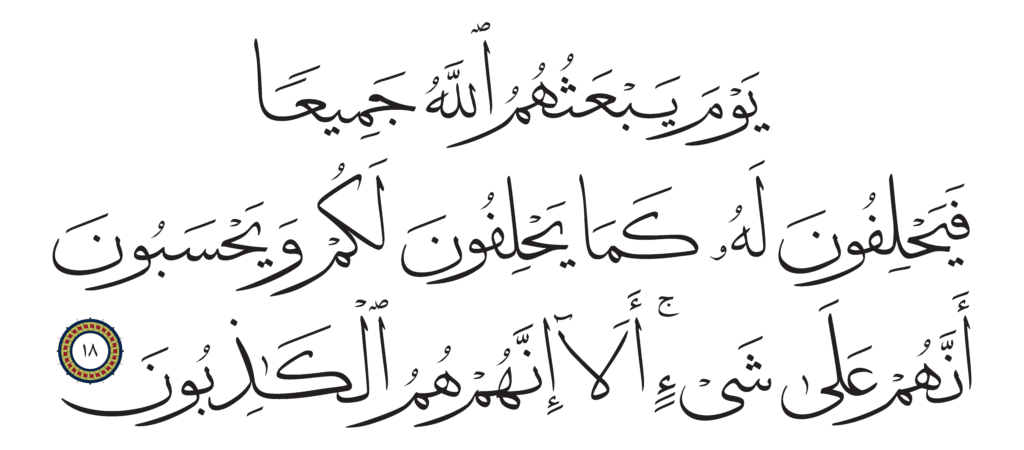 يَوْمَ يَبْعَثُهُمُ ٱللَّهُ جَمِيعًا
فَيَحْلِفُونَ لَهُۥ كَمَا يَحْلِفُونَ لَكُمْ وَيَحْسَبُونَ
أَنَّهُمْ عَلَىٰ شَىْءٍ ۚ أَلَآ إِنَّهُمْ هُمُ ٱلْكَـٰذِبُونَ ١٨